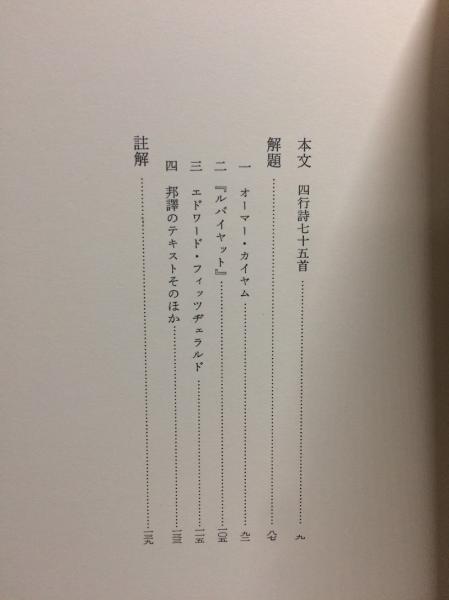 本文 四行詩七十五首 九
解題 八七
一 オーマー・カイヤム 九二
二 『ルバイヤット』 一〇五
三 エドワード・フィッツヂェラルド 一一五
四 邦譯のテキストそのほか 一二三
註解 一二九